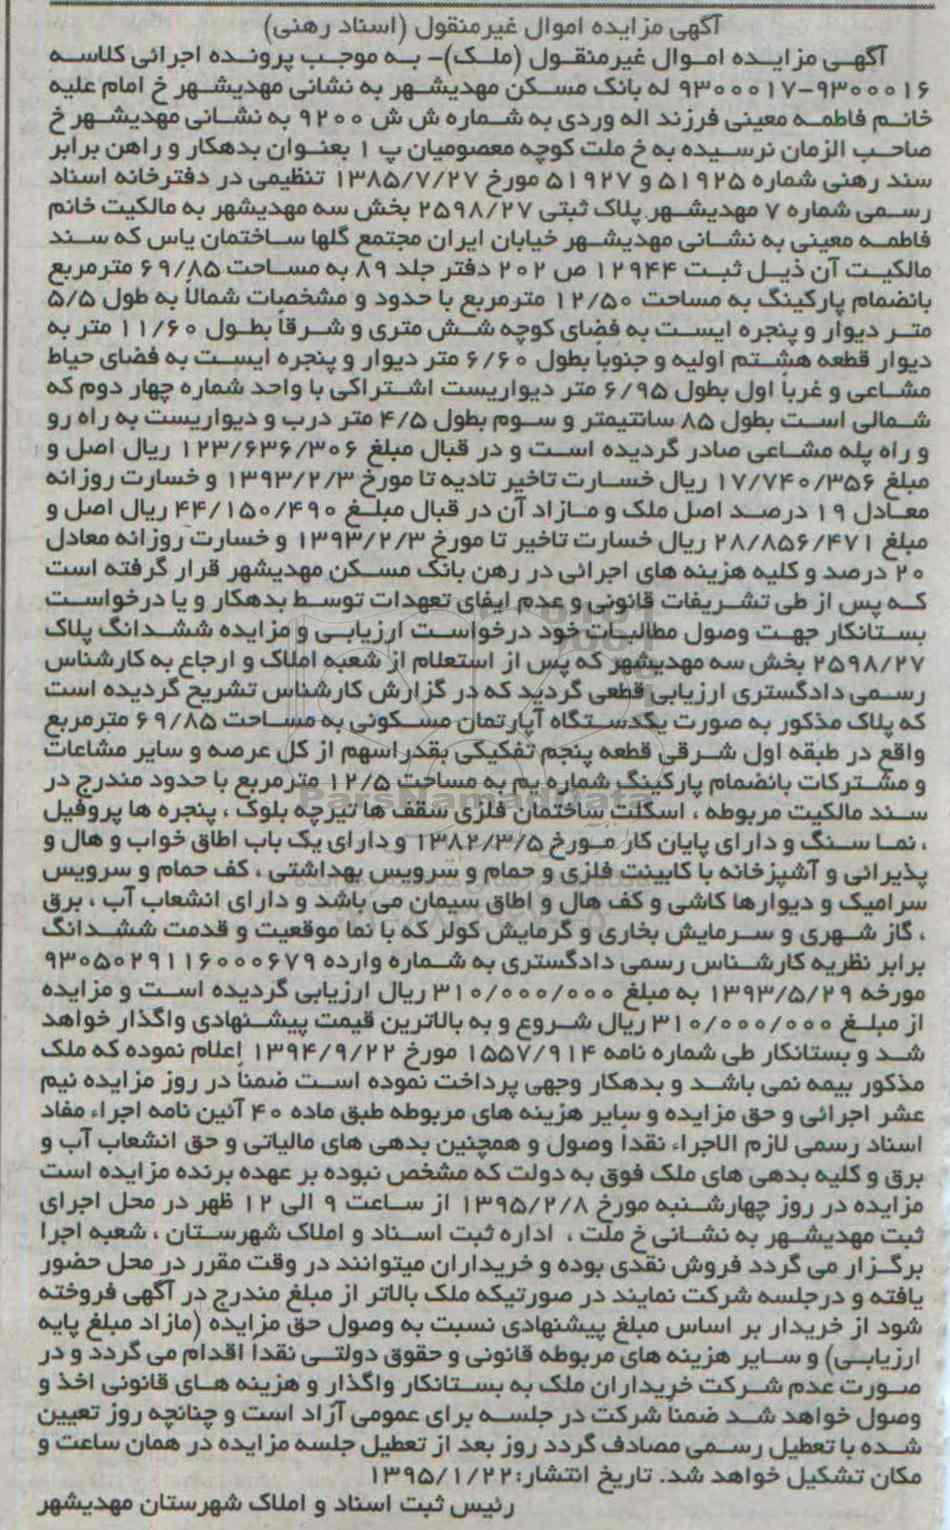 آگهی مزایده اموال غیرمنقول (اسناد رهنی)
آگهی مزایده اموال غیرمنقول (ملک)- به موجب پرونده اجرائی کلاسه
۹۳۰۰۰۱۶-۹۳۰۰۰۱۷ له بانک مسکن مهدیشهر به نشانی مهدیشهر خ امام علیه
خانم فاطمه معینی فرزند اله وردی به شماره ش ش ۹۲۰۰ به نشانی مهدیشهر خ
صاحب الزمان نرسیده به خ ملت کوچه معصومیان پ ۱ بعنوان بدهکار و راهن برابر
سند رهنی شماره ۵۱۹۲۵ و ۵۱۹۲۷ مورخ ۱۳۸۵/۷/۲۷ تنظیمی در دفترخانه اسناد
رسمی شماره ۷ مهدیشهر پلاک ثبتی ۲۵۹۸/۲۷ بخش سه مهدیشهر به مالکیت خانم
فاطمه معینی به نشانی مهدیشهر خیابان ایران مجتمع گلها ساختمان یاس که سند
مالکیت آن ذیل ثبت ۱۲۹۴۴ ص ۲۰۲ دفتر جلد ۸۹ به مساحت ۶۹/۸۵ مترمربع
بانضمام پارکینگ به مساحت ۱۲/۵۰ مترمربع با حدود و مشخصات شمالاً به طول ۵/۵
متر دیوار و پنجره ایست به فضای کوچه شش متری و شرقاً بطول ۱۱/۶۰ متر به
دیوار قطعه هشتم اولیه و جنوباً بطول ۶/۶۰ متر دیوار و پنجره ایست به فضای حیاط
مشاعی و غرباً اول بطول ۶/۹۵ متر دیواریست اشتراکی با واحد شماره چهار دوم که
شمالی است بطول ۸۵ سانتیمتر و سوم بطول ۴/۵ متر درب و دیواریست به راه رو
و راه پله مشاعی صادر گردیده است و در قبال مبلغ ۱۲۳/۶۳۶/۳۰۶ ریال اصل و
مبلغ ۱۷/۷۴۰/۳۵۶ ریال خسارت تاخیر تادیه تا مورخ ۱۳۹۳/۲/۳ و خسارت روزانه
معادل ۱۹ درصد اصل ملک و مازاد آن در قبال مبلغ ۴۴/۱۵۰/۴۹۰ ریال اصل و
مبلغ ۲۸/۸۵۶/۴۷۱ ریال خسارت تاخیر تا مورخ ۱۳۹۳/۲/۳ و خسارت روزانه معادل
۲۰ درصد و کلیه هزینه های اجرائی در رهن بانک مسکن مهدیشهر قرار گرفته است
که پس از طی تشریفات قانونی و عدم ایفای تعهدات توسط بدهکار و یا درخواست
بستانکار جهت وصول مطالبات خود درخواست ارزیابی و مزایده ششدانگ پلاک
۲۵۹۸/۲۷ بخش سه مهدیشهر که پس از استعلام از شعبه املاک و ارجاع به کارشناس
رسمی دادگستری ارزیابی قطعی گردید که در گزارش کارشناس تشریح گردیده است
که پلاک مذکور به صورت یکدستگاه آپارتمان مسکونی به مساحت ۶۹/۸۵ مترمربع
واقع در طبقه اول شرقی قطعه پنجم تفکیکی بقدراسهم از کل عرصه و سایر مشاعات
و مشترکات بانضمام پارکینگ شماره یم به مساحت ۱۲/۵ مترمربع با حدود مندرج در
سند مالکیت مربوطه ، اسکلت ساختمان فلزی سقف ها تیرچه بلوک ، پنجره ها پروفیل
، نما سنگ و دارای پایان کار مورخ ۱۳۸۲/۳/۵ و دارای یک باب اطاق خواب و هال و
پذیرائی و آشپزخانه با کابینت فلزی و حمام و سرویس بهداشتی ، کف حمام و سرویس
سرامیک و دیوارها کاشی و کف هال و اطاق سیمان می باشد و دارای انشعاب آب ، برق
، گاز شهری و سرمایش بخاری و گرمایش کولر که با نما موقعیت و قدمت ششدانگ
برابر نظریه کارشناس رسمی دادگستری به شماره وارده ۹۳۰۵۰۲۹۱۱۶۰۰۰۶۷۹
مورخه ۱۳۹۳/۵/۲۹ به مبلغ ۳۱۰/۰۰۰/۰۰۰ ریال ارزیابی گردیده است و مزایده
از مبلغ ۳۱۰/۰۰۰/۰۰۰ ریال شروع و به بالاترین قیمت پیشنهادی واگذار خواهد
شد و بستانکار طی شماره نامه ۱۵۵۷/۹۱۴ مورخ ۱۳۹۴/۹/۲۲ اعلام نموده که ملک
مذکور بیمه نمی باشد و بدهکار وجهی پرداخت نموده است ضمناً در روز مزایده نیم
عشر اجرائی و حق مزایده و سایر هزینه های مربوطه طبق ماده ۴۰ آئین نامه اجراء مفاد
اسناد رسمی لازم الاجراء نقداً وصول و همچنین بدهی های مالیاتی و حق انشعاب آب و
برق و کلیه بدهی های ملک فوق به دولت که مشخص نبوده بر عهده برنده مزایده است
مزایده در روز چهارشنبه مورخ ۱۳۹۵/۲/۸ از ساعت ۹ الی ۱۲ ظهر در محل اجرای
ثبت مهدیشهر به نشانی خ ملت ، اداره ثبت اسناد و املاک شهرستان ، شعبه اجرا
برگزار می گردد فروش نقدی بوده و خریداران میتوانند در وقت مقرر در محل حضور
یافته و درجلسه شرکت نمایند در صورتیکه ملک بالاتر از مبلغ مندرج در آگهی فروخته
شود از خریدار بر اساس مبلغ پیشنهادی نسبت به وصول حق مزایده (مازاد مبلغ پایه
ارزیابی) و سایر هزینه های مربوطه قانونی و حقوق دولتی نقداً اقدام می گردد و در
صورت عدم شرکت خریداران ملک به بستانکار واگذار و هزینه های قانونی اخذ و
وصول خواهد شد ضمناً شرکت در جلسه برای عمومی آزاد است و چنانچه روز تعیین
شده با تعطیل رسمی مصادف گردد روز بعد از تعطیل جلسه مزایده در همان ساعت و
مکان تشکیل خواهد شد. تاریخ انتشار:۱۳۹۵/۱/۲۲
رئیس ثبت اسناد و املاک شهرستان مهدیشهر